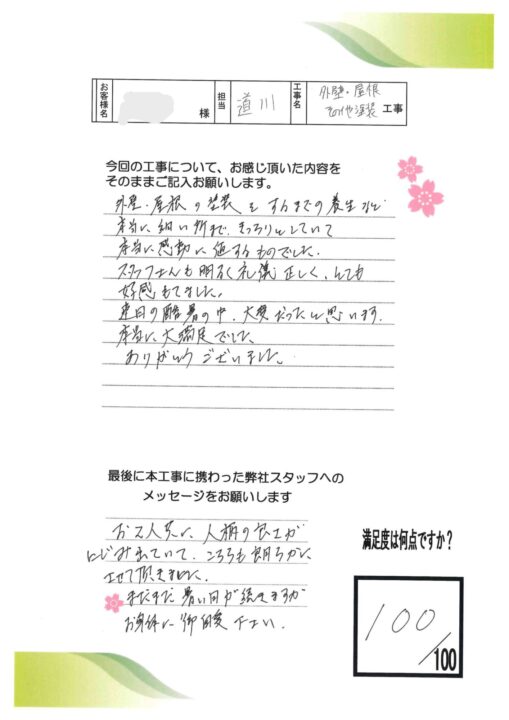 お客様名 様 担当 道川 工事名 外壁・屋根 その他塗装 工事
今回の工事について、お感じ頂いた内容を
そのままご記入お願いします。
外壁・屋根の塗装をするまでの養生など
本当に細い所まできっちりとしていて
本当に感動に値するものでした。
スタッフさんも明るく礼儀正しく、とても
好感もてました。
連日の酷暑の中、大変だったと思います。
本当に大満足でした。
ありがとうございました。
最後に本工事に携わった弊社スタッフへの
メッセージをお願いします
お二人共に人柄の良さが
にじみ出ていて、こちらも朗らかに
させて頂きました。
まだまだ暑い日が続きますが
お身体に御自愛下さい。
満足度は何点ですか？
100/100